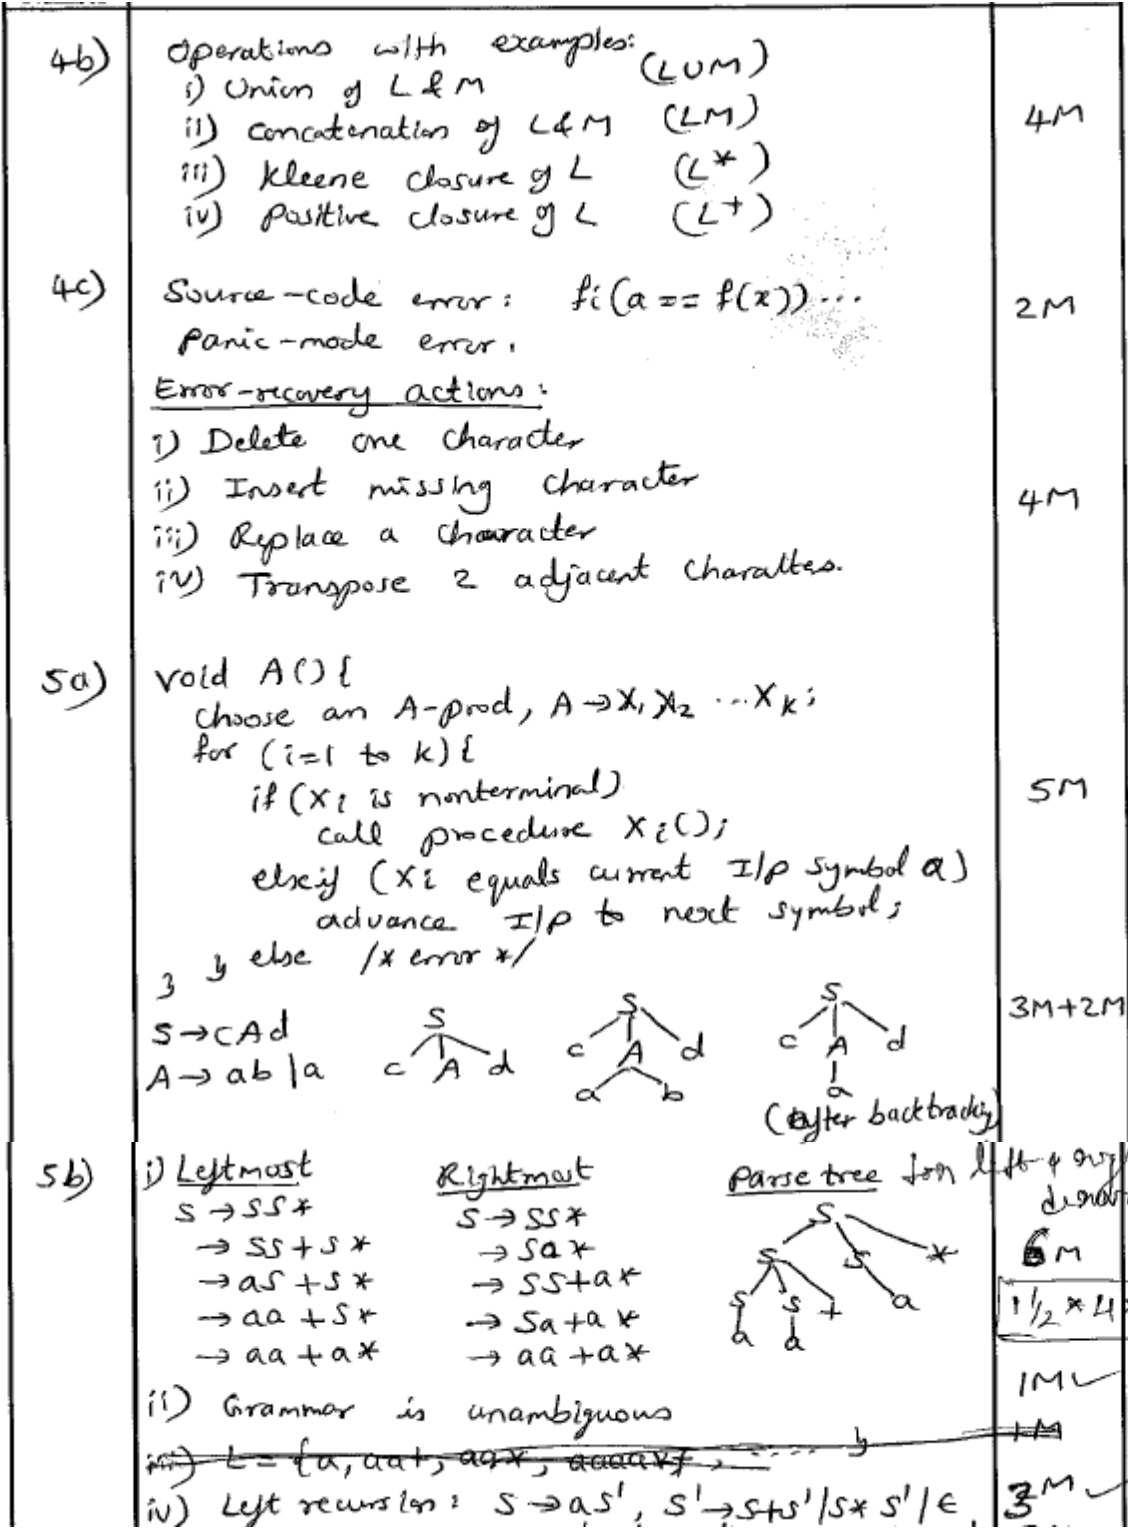 4b) Operations with examples:
i) Union of L & M (L∪M)
ii) Concatenation of L&M (LM) 4M
iii) Kleene closure of L (L*)
iv) Positive closure of L (L+)
4c) Source-code error: fi(a == f(x))... 2M
Panic-mode error.
Error-recovery actions:
i) Delete one character
ii) Insert missing character 4M
iii) Replace a character
iv) Transpose 2 adjacent
5a) void A() {
choose an A-prod, A→X1 X2 ...Xk;
for (i=1 to k) {
if (Xi is nonterminal) 5M
call procedure Xi();
elseif (Xi equals current I/P symbol a)
advance I/P to next symbol;
} else /* error */
}
3M+2M
S→cAd S S S
c A d c A d c A d
A→ab|a a b a
(after backtracking)
5b) i) Leftmost Rightmost Parse tree for left &
S→SS* S→SS* S
→SS+S* →Sa* S S * 6M
→aS+S* →SS+a* S S + a 1 1/2 * 4
→aa+S* →Sa+a* a a
→aa+a* →aa+a*
ii) Grammar is unambiguous 1M
iii) L = {a, aa+, aa*, ..... } 1M
iv) Left recursion: S→aS', S'→S+S'/S*S'/ϵ 3M